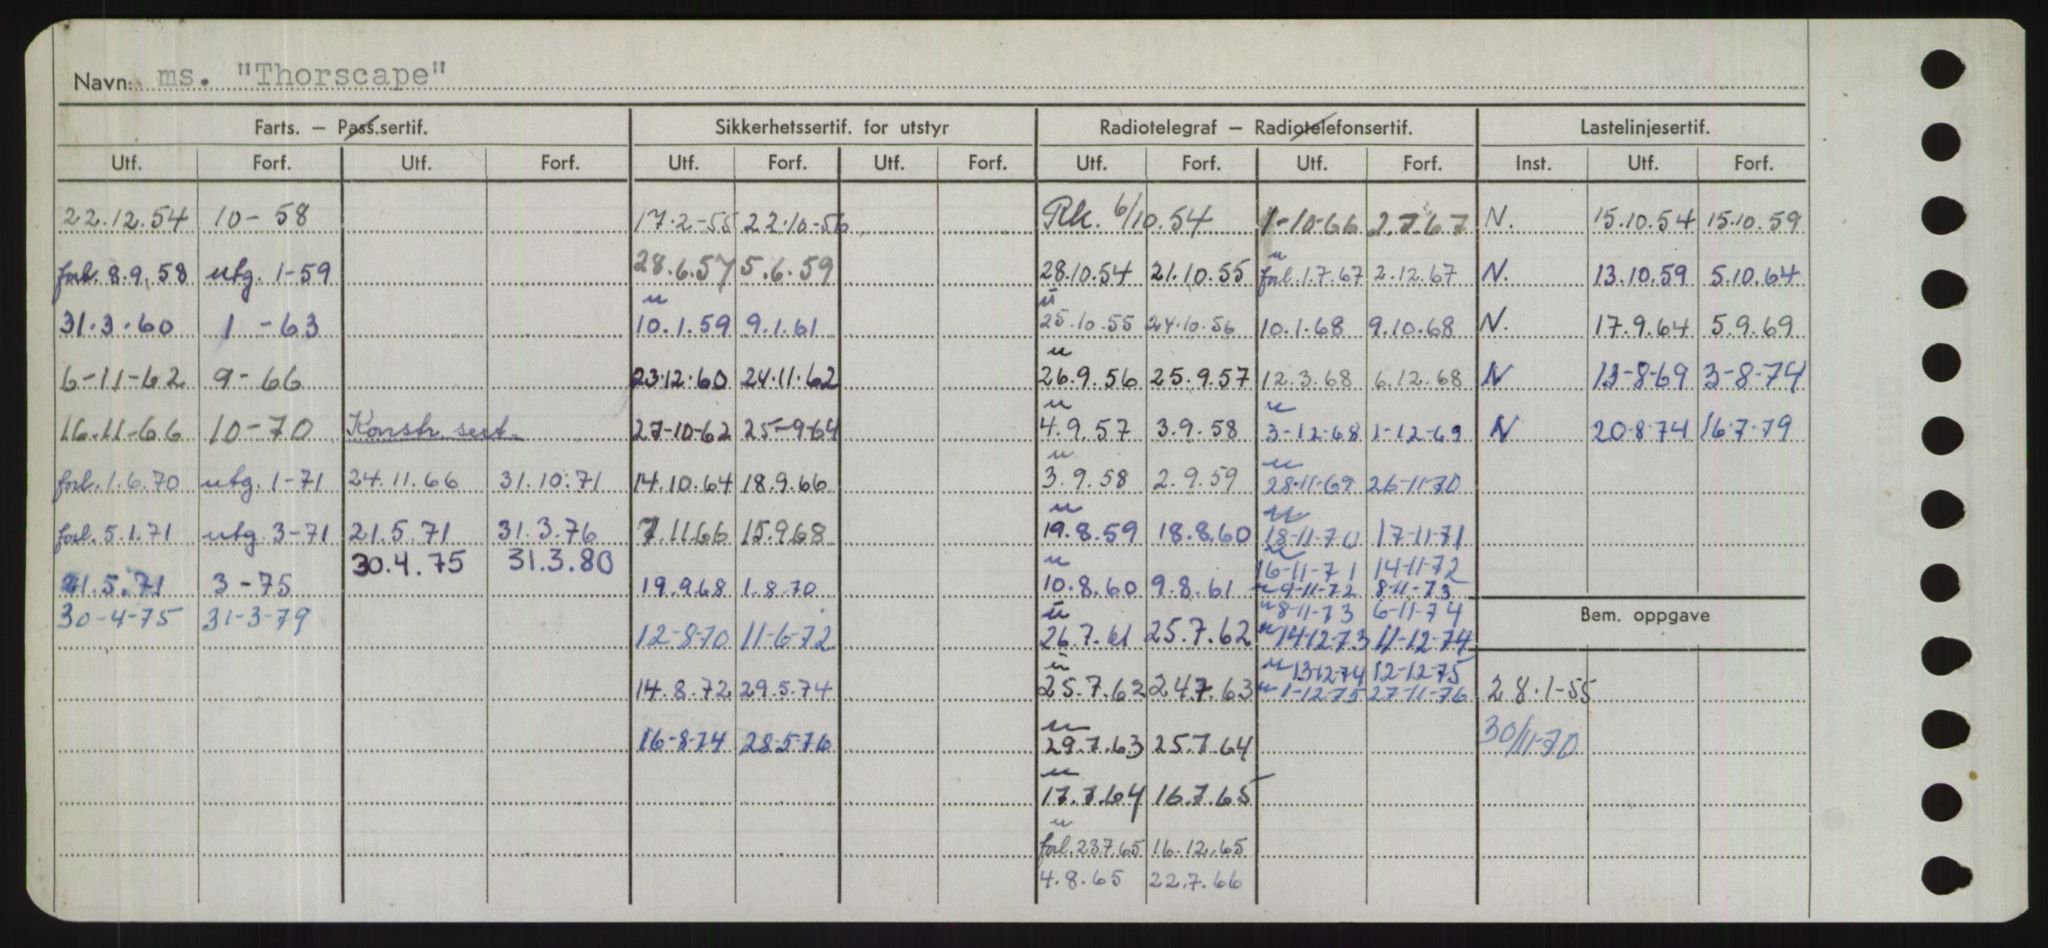 Navn: ms. "Thorscape"
Farts. – Pass.sertif. Sikkerhetssertif. for utstyr Radiotelegraf – Radiotelefonsertif. Lastelinjesertif.
Utf. Forf. Utf. Forf. Utf. Forf. Utf. Forf. Utf. Forf. Utf. Forf. Inst. Utf. Forf.
22.12.54 10-58 17.2-55 22.10-56 Rk. 6/10.54 1-10-66 2.7.67 N. 15.10.54 15.10.59
forl. 8.9.58 utg. 1-59 28.6.57 5.6.59 28.10.54 21.10.55 u forl. 1.7.67 2.12.67 N. 13.10.59 5.10.64
31.3.60 1-63 u 10.1.59 9.1.61 u 25.10.55 24.10.56 10.1.68 9.10.68 N. 17.9.64 5.9.69
6-11-62 9-66 23.12.60 24.11.62 u 26.9.56 25.9.57 12.3.68 6.12.68 N 13-8-69 3-8-74
16-11-66 10-70 Konstr. sert. 27-10-62 25-9-64 u 4.9.57 3.9.58 u 3-12-68 1-12-69 N 20-8-74 16-7-79
forl. 1.6.70 utg. 1-71 24.11.66 31.10.71 14.10.64 18.9.66 u 3.9.58 2.9.59 u 28-11-69 26-11-70
forl. 5.1.71 utg. 3-71 21.5.71 31.3.76 7.11.66 15.9.68 u 19.8.59 18.8.60 u 18-11-70 17-11-71
30.4.75 31.3.80 u 16-11-71 14-11-72
21.5.71 3-75 19.9.68 1.8.70 u 10.8.60 9.8.61 u 9-11-72 8-11-73
30-4-75 31-3-79 u 8-11-73 6-11-74
Bem. oppgave
12-8-70 11-6-72 u 26.7.61 25.7.62 u 14-12-73 11-12-74
u 13-12-74 12-12-75
14.8.72 29.5.74 u 25.7.62 24.7.63 u 1-12-75 27-11-76 28.1-55
16-8-74 28-5-76 u 29.7.63 25.7.64 30/11-70
u 17.7.64 16.7.65
u forl. 23.7.65 16.12.65
4.8.65 22.7.66